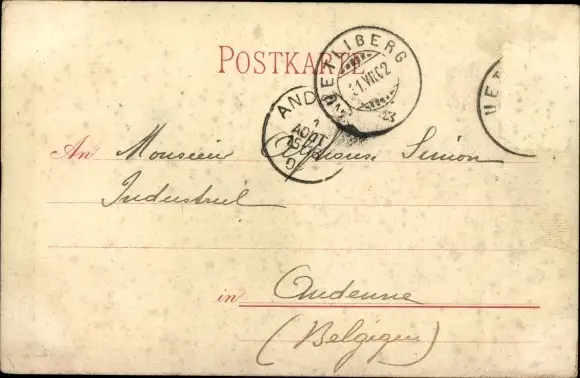 POSTKARTE
UETLIBERG
31.VII.02
AND
1
AOUT
An Monsieur Alphonse Simon
Industriel
in Andenne
(Belgique)